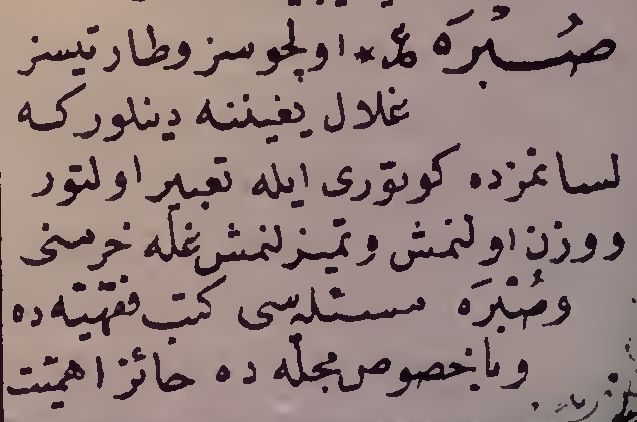 صُبْرَه ع * اولچوسز وطارتيسز
غلال يغيننه دينلور كه
لسانمزده كوتوری ايله تعبير اولنور
ووزن اولنمش وتميزلنمش غلّه خرمنی
وصُبْرَه مسئله سی كتب فقهيّه ده
وباخصوص مجلّه ده حائز اهميّت